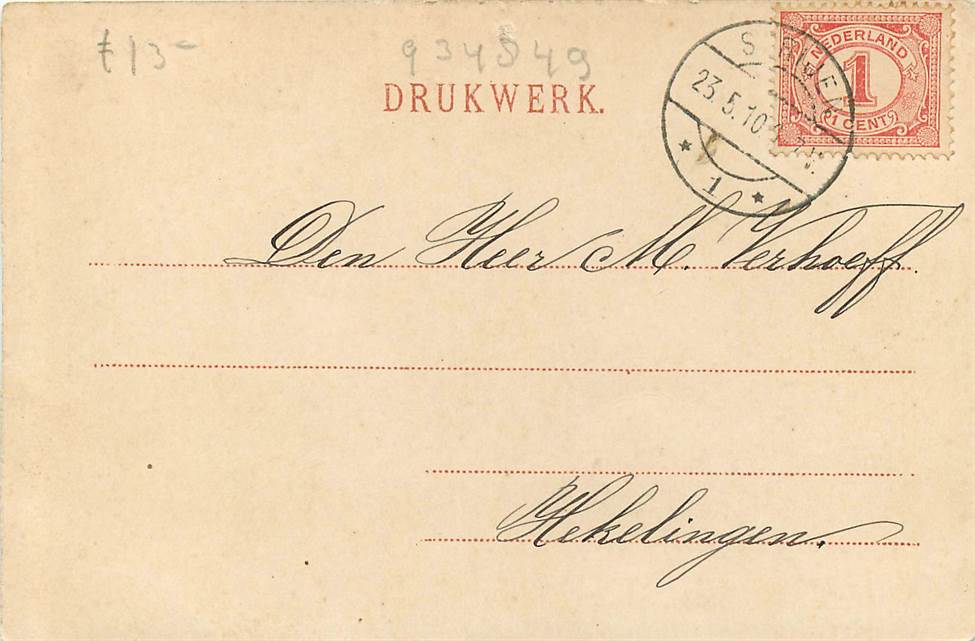 f 13-
934849
DRUKWERK.
NEDERLAND
1
1 CENT
23.5.10
1
Den Heer M. Verhoeff.
Hekelingen.